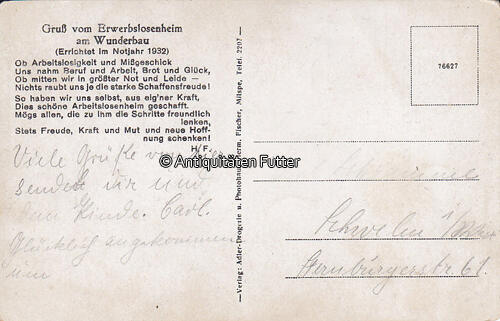 Gruß vom Erwerbslosenheim
am Wunderbau
(Errichtet im Notjahr 1932)
Ob Arbeitslosigkeit und Mißgeschick
Uns nahm Beruf und Arbeit, Brot und Glück,
Ob mitten wir in größter Not und Leide —
Nichts raubt uns je die starke Schaffensfreude!
So haben wir uns selbst, aus eig'ner Kraft,
Dies schöne Arbeitslosenheim geschafft.
Mögs allen, die zu ihm die Schritte freundlich
lenken,
Stets Freude, Kraft und Mut und neue Hoff-
nung schenken!
H/F.
Viele Grüße von
sendet wir und
Carl.
Glücklich angekommen
um
© Antiquitäten Futter
—Verlag: Adler-Drogerie u. Photohaus Herm. Fischer, Milspe, Telef. 2207—
76627
Schwelm i/Westf
Sternburgerstr. 61.